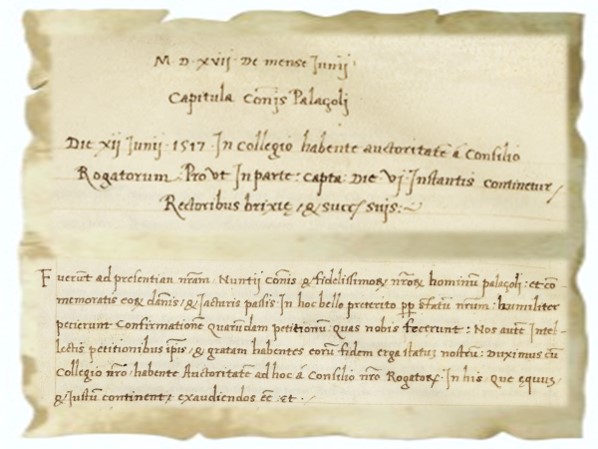 M D xvij De mense Junij
Capitula Cõnis Palaçolj
Die xij Junij 1517 In Collegio habente auctoritatẽ á Consilio
Rogatorum Prout In parte: capta Die vj Instantis continetur/
Rectoribus brixię /& succ/ suis:
Fuerũt ad presentian nrãm Nuntii cõnis & fidelissimoꝝ nrõꝝ hominũ palaçoli: et cõ
memoratis eoꝝ dãnis/& Jacturis passis In hoc bello preterito ꝓp statũ nrũm: humiliter
petierunt Confirmationẽ quarũdam petitionũ quas nobis fecerunt: Nos autẽ Intel-
lectis petitionibus ip̃is /& gratam habentes eorũ fidem erga statũ nostrũ: Duximus cũ
Collegio nrõ habente Auctoritatẽ ad hoc á Consilio nrõ Rogatoꝝ In his que ęquũ/
& Justũ continent/ exaudiendos eẽ et